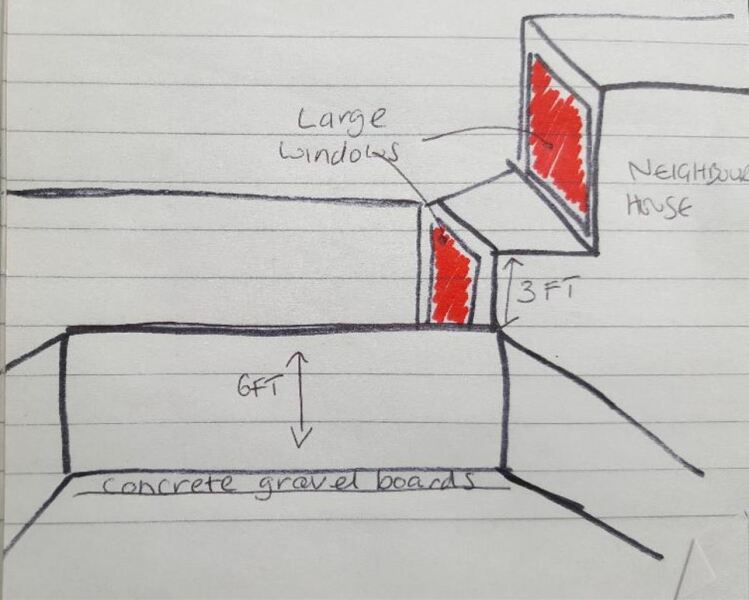 Large
windows
NEIGHBOUR
HOUSE
3 FT
6FT
concrete gravel boards